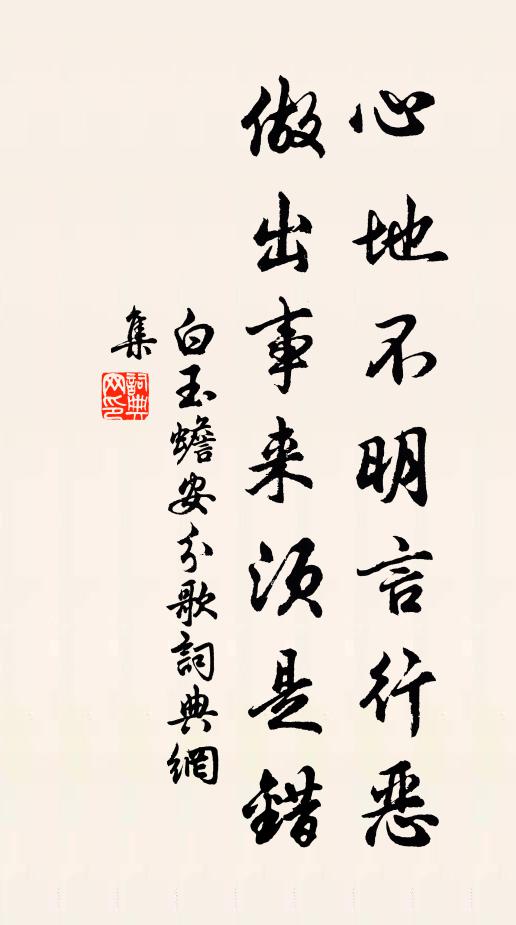 心地不明言行恶
做出事来须是錯
白玉蟾安分歌詞典網
集
詞典
网印